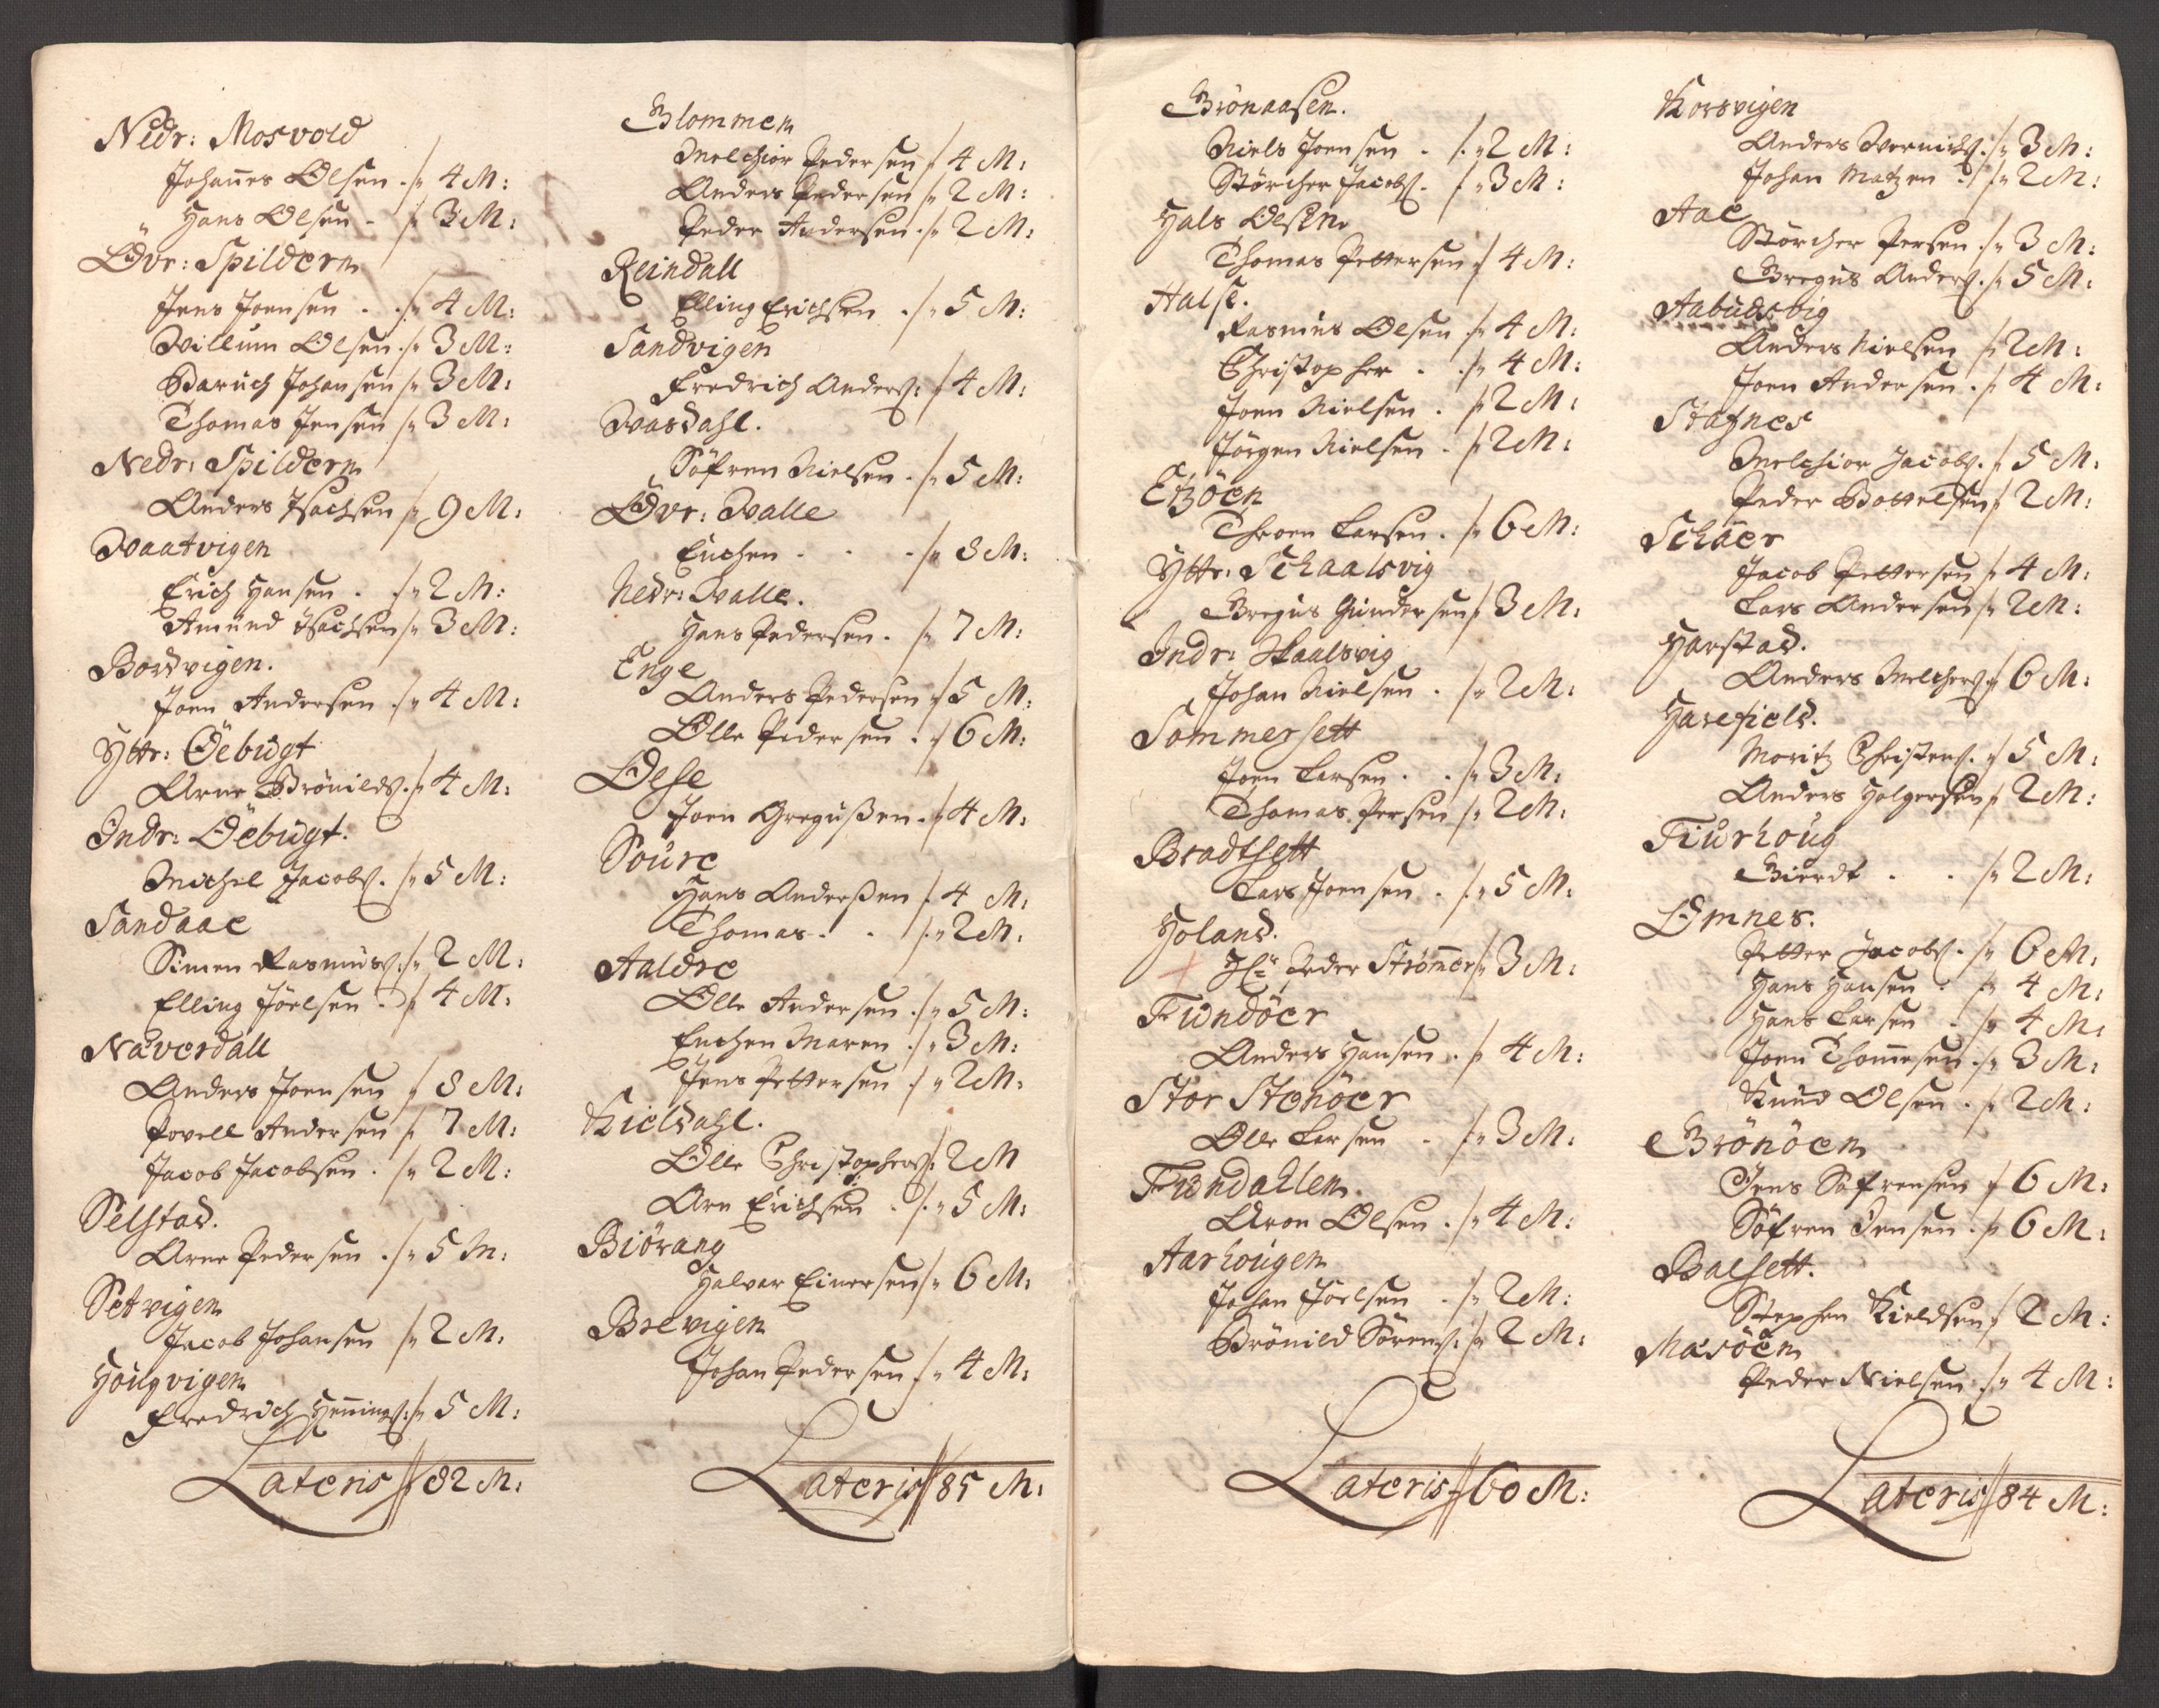 Nedr: Mosvold
Johannes Olsen ./" 4 M:
Hans Olsen - /" 3 M:
Öve: Spildern
Jens Joensen . ./" 4 M:
Willum Olsen ./" 3 M:
Baruch Johansen /" 3 M:
Thomas Jensen /" 3 M:
Nedr: Spildern
Anders Isachsen /" 9 M:
Waatvigen
Erich Hansen . /" 2 M:
Amund Isachsen /" 3 M:
Bordvigen.
Joen Andersen ./" 4 M:
Yttr: Öebugt
Arne Brönilds. /" 4 M:
Indr: Öebugt.
Michel Jacobs. /" 5 M:
Sandaae
Simen Rasmus: /" 2 M:
Elling Jöelsen . /" 4 M:
Naverdall
Anders Joensen /" 8 M:
Povell Andersen /" 7 M:
Jacob Jacobsen . /" 2 M:
Selstad.
Arne Pedersen ./" 5 M:
Setvigen
Jacob Johansen /" 2 M:
Hougvigen
Fredrich Hennings: /" 5 M:
Lateris // 82 M:
Blommen
Melchior Pedersen /" 4 M:
Anders Pedersen /" 2 M:
Peder Andersen ./" 2 M:
Reindall
Elling Erichsen ./" 5 M:
Sandvigen
Fredrich Anders: /" 4 M:
Wasdahl.
Söfren Nielsen ./" 5 M:
Övr: Walle
Enchen . . ./" 8 M:
Nedr: Walle.
Hans Pedersen . /" 7 M:
Enge
Anders Pedersen /" 5 M:
Olle Pedersen . /" 6 M:
Oese
Joen Gregussen . /" 4 M:
Soure
Hans Anderssen /" 4 M:
Thomas . . /" 2 M:
Aaldre
Olle Andersen ./" 5 M:
Enchen Maren ./" 3 M:
Jens Pettersen ./" 2 M:
Kieldahl.
Olle Christophers: 2 M
Arn Erichsen . /" 5 M:
Biörang
Halvar Einersen /" 6 M:
Brevigen
Johan Pedersen /" 4 M:
Lateris // 85 M:
Brönaasen.
Niels Joensen . /" 2 M:
Störcher Jacobs. /" 3 M:
Hals Olsen
Thomas Pettersen /" 4 M:
Halse.
Rasmus Olsen ./" 4 M:
Christopher . ./" 4 M:
Joen Nielsen . /" 2 M:
Jörgen Nielsen . /" 2 M:
Etzöen
Throen Larsen . /" 6 M:
Yttr: Schaalsvig
Gregus Gundersen /" 3 M:
Indr: Skaalsvig
Johan Nielsen . /" 2 M:
Sommersett
Joen Larsen . . /" 3 M:
Thomas Persen /" 2 M:
Bradtsett
Lars Joensen . /" 5 M:
Holand.
Hr: Peder Strömer /" 3 M:
Fundöer
Anders Hansen . /" 4 M:
Stor Stenöer
Olle Larsen . /" 3 M:
Fundahlen.
Aron Olsen . /" 4 M:
Aarhougen
Johan Jöelsen . /" 2 M:
Brönild Sörens: /" 2 M:
Lateris // 60 M:
Korsvigen
Anders Wernichs. /" 3 M:
Johan Matzen . /" 2 M:
Aae
Störcher Persen ./" 3 M:
Gregus Anders. /" 5 M:
Aabudsvig
Anders Nielsen /" 2 M:
Joen Andersen . /" 4 M:
Stafnes
Melchior Jacobs. /" 5 M:
Peder Bottelsen /" 2 M:
Schaer
Jacob Pettersen /" 4 M:
Lars Andersen /" 2 M:
Harstad.
Anders Melchers /" 6 M:
Harefield.
Moritz Christens. /" 5 M:
Anders Holgersen /" 2 M:
Fiurhoug
Gierdt . . /" 2 M:
Omnes.
Petter Jacobs. /" 6 M:
Hans Hansen . /" 4 M:
Hans Larsen . /" 4 M:
Joen Thommesen ./" 3 M:
Knud Olsen . /" 2 M:
Brönöen
Jens Söfrensen /" 6 M:
Söfren Jensen . /" 6 M:
Balsett.
Stephen Kieldsen /" 2 M:
Masöen
Peder Nielsen ./" 4 M:
Lateris // 84 M: